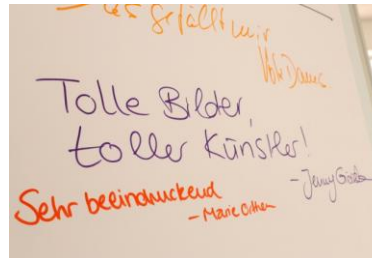 es gefällt mir
Tolle Bilder,
toller Künstler!
- Jenny
Sehr beeindruckend
- Marie